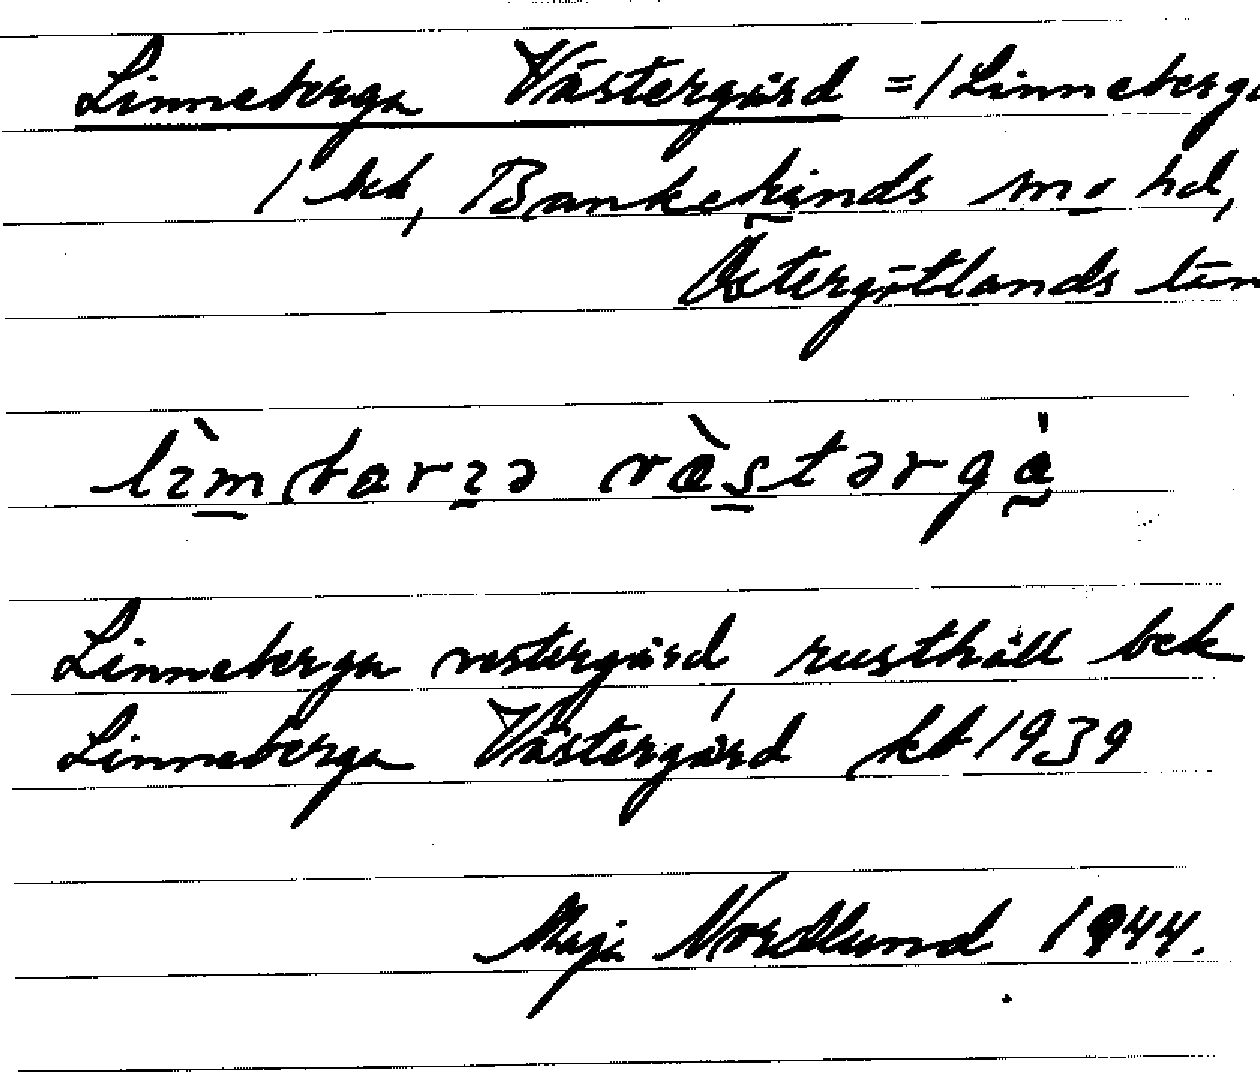 Linneberga Västergård = / Linneberga
/ bek, Bankekinds sn o hd,
Östergötlands län
Linneberga vestergård, rusthåll bek
Linneberga Västergård kb 1939
Maja Nordlund 1944.